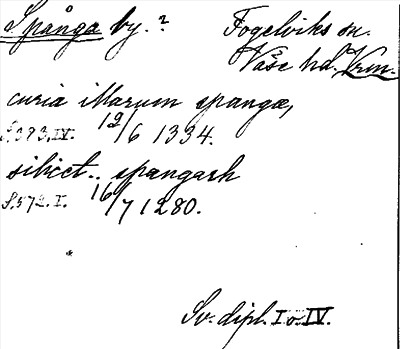 Spånga by.? Fogelviks sn.
Väse hd. Vrm.
curia illarum spangæ,
S.393.IV. 12/6 1334.
silicet.. spangash
S.572.I. 16/7 1280.
Sv. dipl. I o. IV.